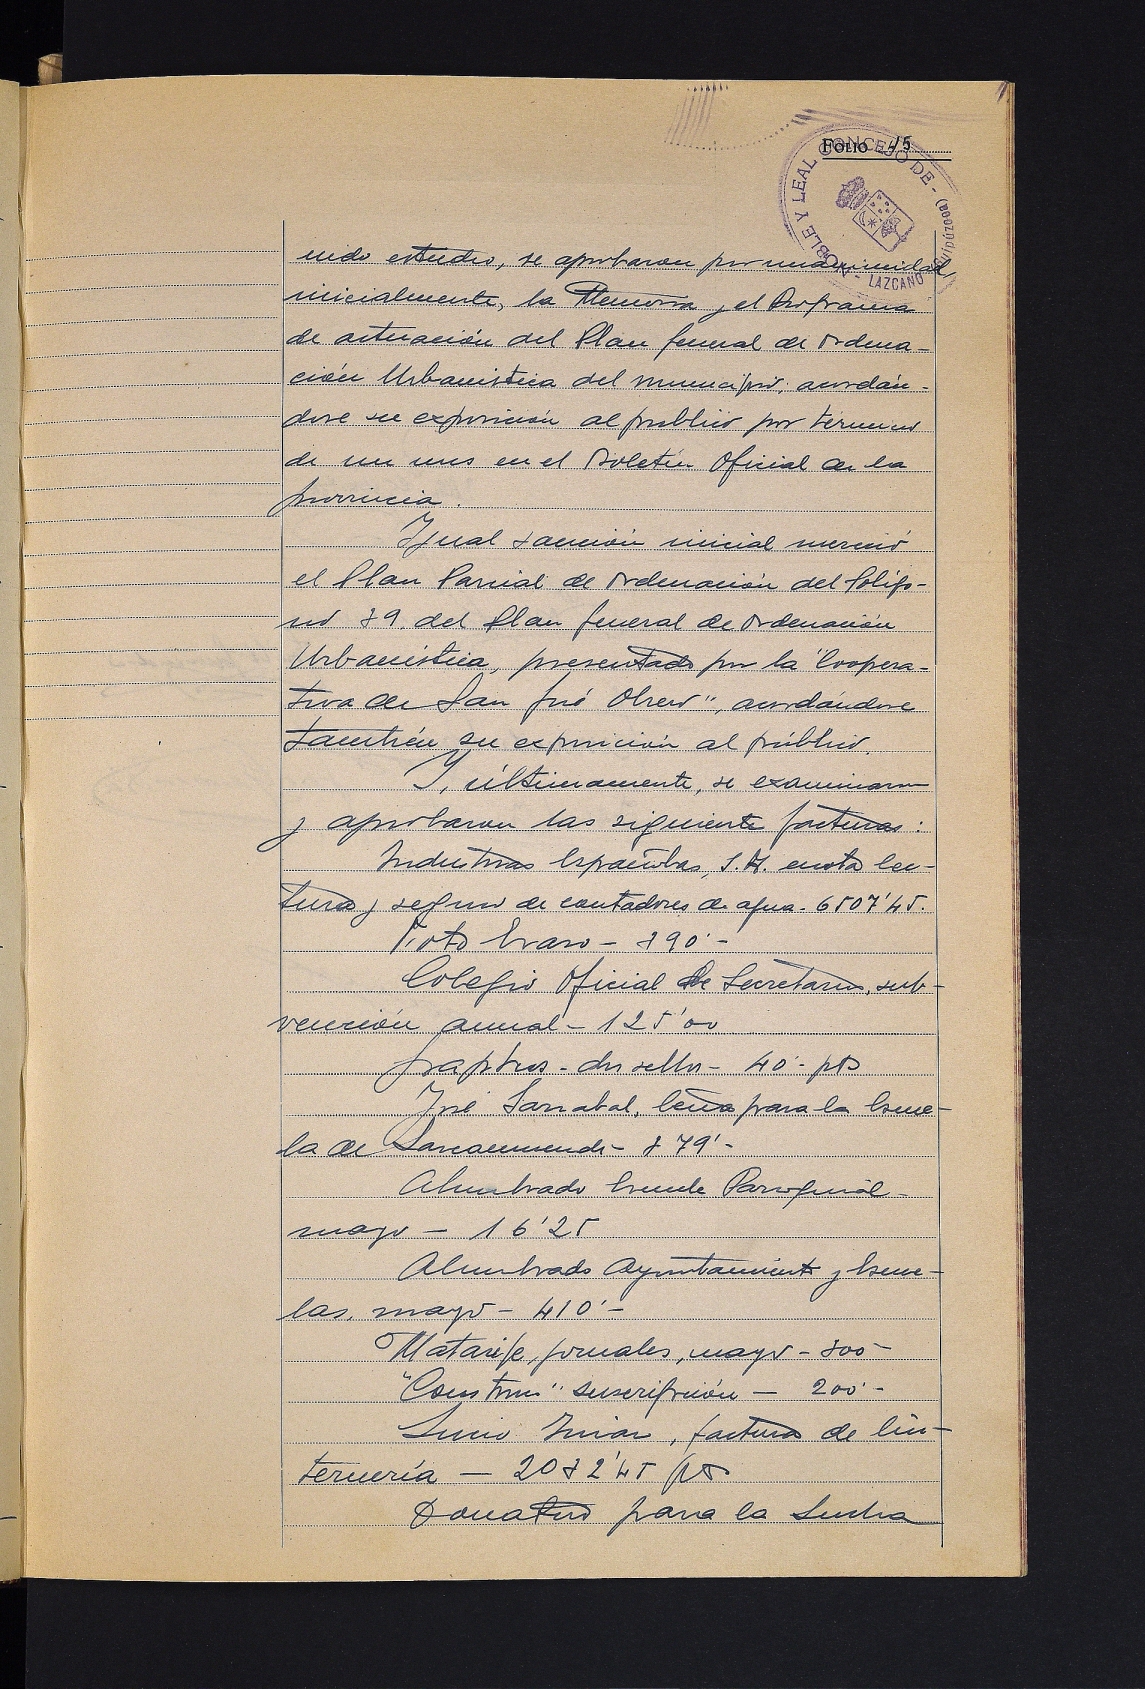 Folio 15
NOBLE Y LEAL CONCEJO DE - LAZCANO (Guipúzcoa)
nido estudio, se aprobaron por unanimidad,
inicialmente, la Memoria y el Programa
de actuación del Plan General de Ordena-
ción Urbanística del municipio; acordán-
dose su exposición al público por término
de un mes en el Boletín Oficial de la
provincia.
Igual sanción inicial mereció
el Plan Parcial de Ordenación del Polígo-
no 39 del Plan General de Ordenación
Urbanística, presentado por la "Coopera-
tiva de San José Obrero", acordándose
también su exposición al público.
Y, últimamente, se examinaron
y aprobaron las siguiente facturas:
Industrias Españolas, S.A. cuota lec-
tura y seguro de contadores de agua - 6507'45.
Foto - 390'-
Colegio Oficial de Secretarios, sub-
vención anual - 125'00
Graphos - dos sellos - 40'- pts
José Sarrabal, leña para la Escue-
la de - 379'-
Alumbrado Escuela Parroquial -
mayo - 16'25
Alumbrado Ayuntamiento y Escue-
las, mayo - 410'-
Matarife, jornales, mayo - 300-
suscripción - 200'-
Lucio, factura de lin-
ternería - 2032'45 pts
Donativo para la Lucha